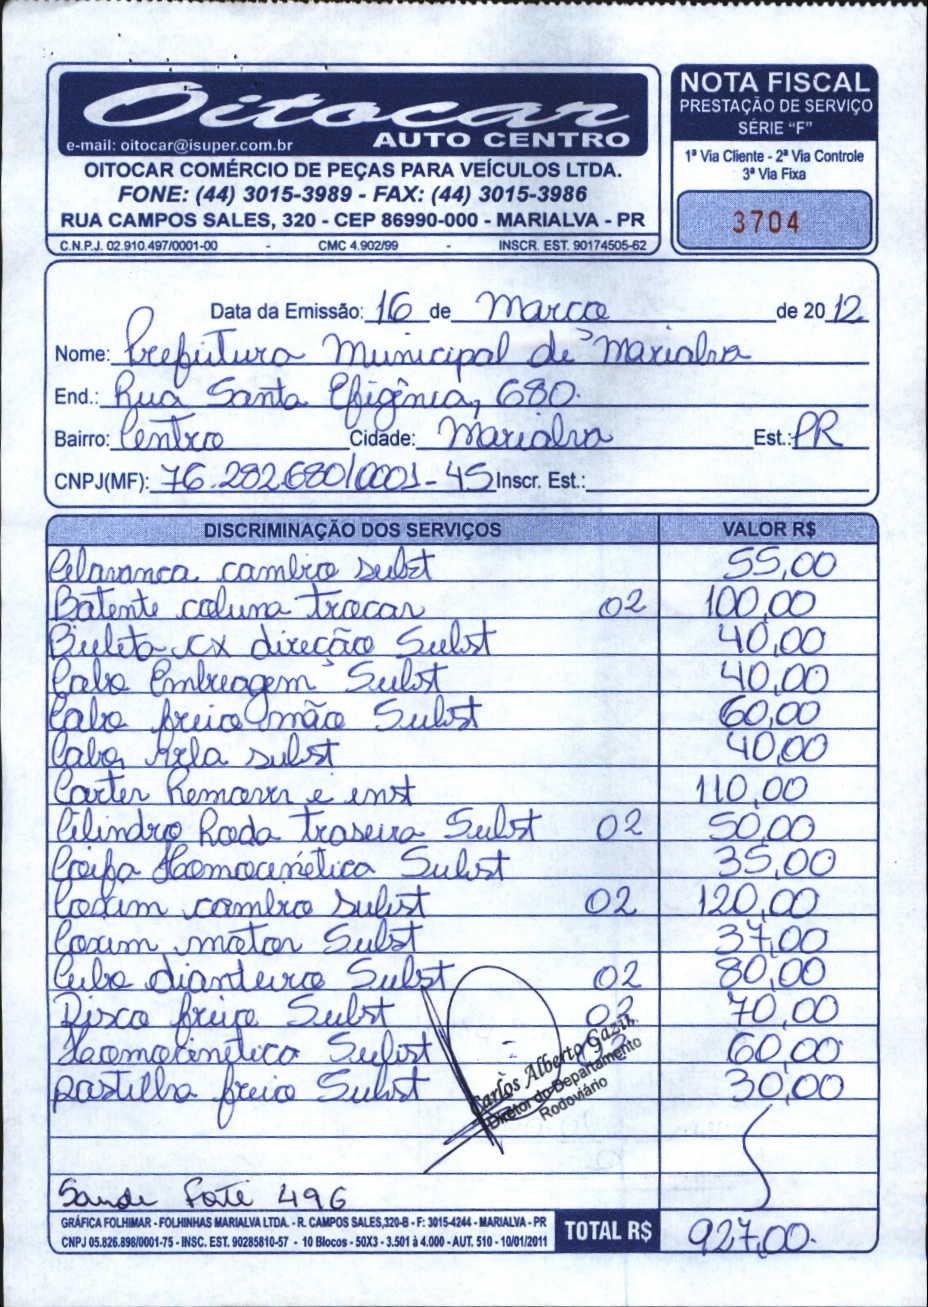 Oitocar
AUTO CENTRO
e-mail: oitocar@isuper.com.br
OITOCAR COMÉRCIO DE PEÇAS PARA VEÍCULOS LTDA.
FONE: (44) 3015-3989 - FAX: (44) 3015-3986
RUA CAMPOS SALES, 320 - CEP 86990-000 - MARIALVA - PR
C.N.P.J. 02.910.497/0001-00 - CMC 4.902/99 - INSCR. EST. 90174505-62
NOTA FISCAL
PRESTAÇÃO DE SERVIÇO
SÉRIE "F"
1ª Via Cliente - 2ª Via Controle
3ª Via Fixa
3704
Data da Emissão: 16 de Março de 2012
Nome: Prefeitura Municipal de Marialva
End.: Rua Santa Efigênia, 680
Bairro: Centro Cidade: Marialva Est.: PR
CNPJ(MF): 76.282.680/0001-45 Inscr. Est.:
DISCRIMINAÇÃO DOS SERVIÇOS VALOR R$
cambio subst 55,00
Batente coluna trocar 02 100,00
Bieleta cx direção Subst 40,00
Cabo Embreagem Subst 40,00
Cabo freio mão Subst 60,00
Cabo vela subst 40,00
Carter Remover e inst 110,00
Cilindro Roda traseira Subst 02 50,00
Coifa Homocinética Subst 35,00
Coxim cambio Subst 02 120,00
Coxim motor Subst 37,00
Cubo dianteiro Subst 02 80,00
Disco freio Subst 02 70,00
Homocinetica Subst 2 60,00
pastilha freio Subst 30,00
Carlos Alberto Gazin
Diretor do Departamento
Rodoviário
496
GRÁFICA FOLHIMAR - FOLHINHAS MARIALVA LTDA. - R. CAMPOS SALES,320-B - F: 3015-4244 - MARIALVA - PR
CNPJ 05.826.898/0001-75 - INSC. EST. 90285810-57 - 10 Blocos - 50X3 - 3.501 à 4.000 - AUT. 510 - 10/01/2011
TOTAL R$ 927,00